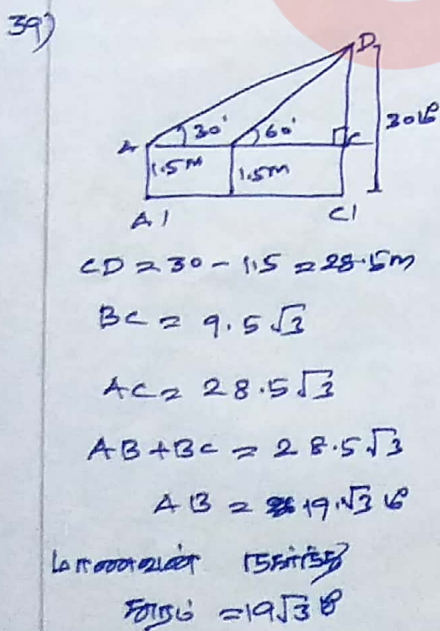 39)
D
30°
60°
30 மீ
A
C
1.5m
1.5m
A1
C1
CD = 30 - 1.5 = 28.5m
BC = 9.5√3
AC = 28.5√3
AB + BC = 28.5√3
AB = 19√3 மீ
மாணவன் நகர்ந்த
தூரம் = 19√3 மீ